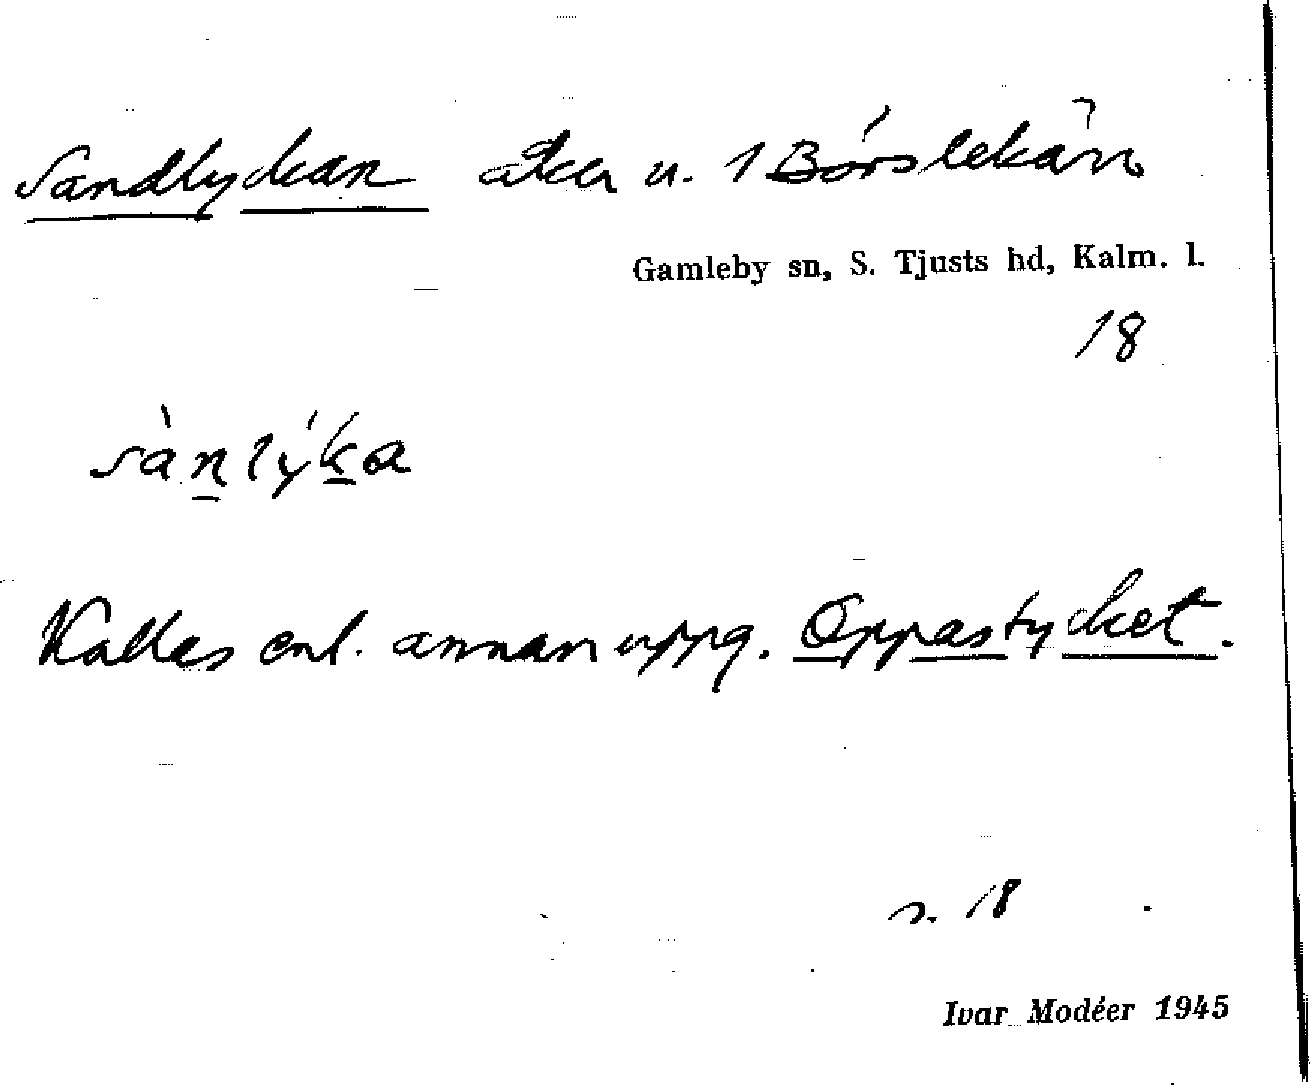 Sandlyckan åker u. 1 Börslekärr
Gamleby sn, S. Tjusts hd, Kalm. l.
18
sànlýka
Kallas enl. annan uppg. Oppastycket.
s. 18
Ivar Modéer 1945